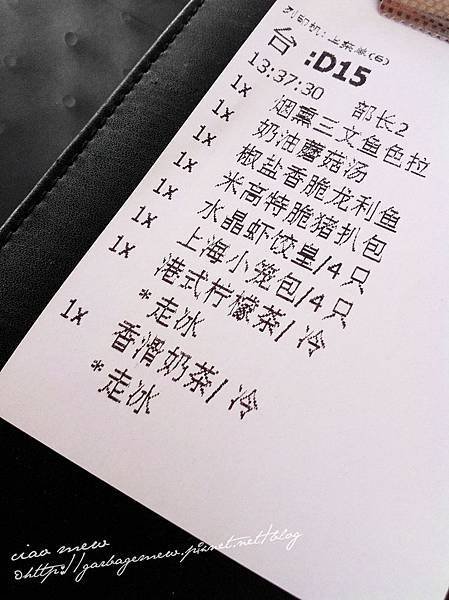 列印机:上菜单(6)
台 :D15
13:37:30 部长2
1x 烟熏三文鱼色拉
1x 奶油蘑菇汤
1x 椒盐香脆龙利鱼
1x 米高特脆猪扒包
1x 水晶虾饺皇/4只
1x 上海小笼包/4只
1x 港式柠檬茶/冷
*走冰
1x 香滑奶茶/冷
*走冰
ciao mew
©http://garbagemew.pixnet.net/blog